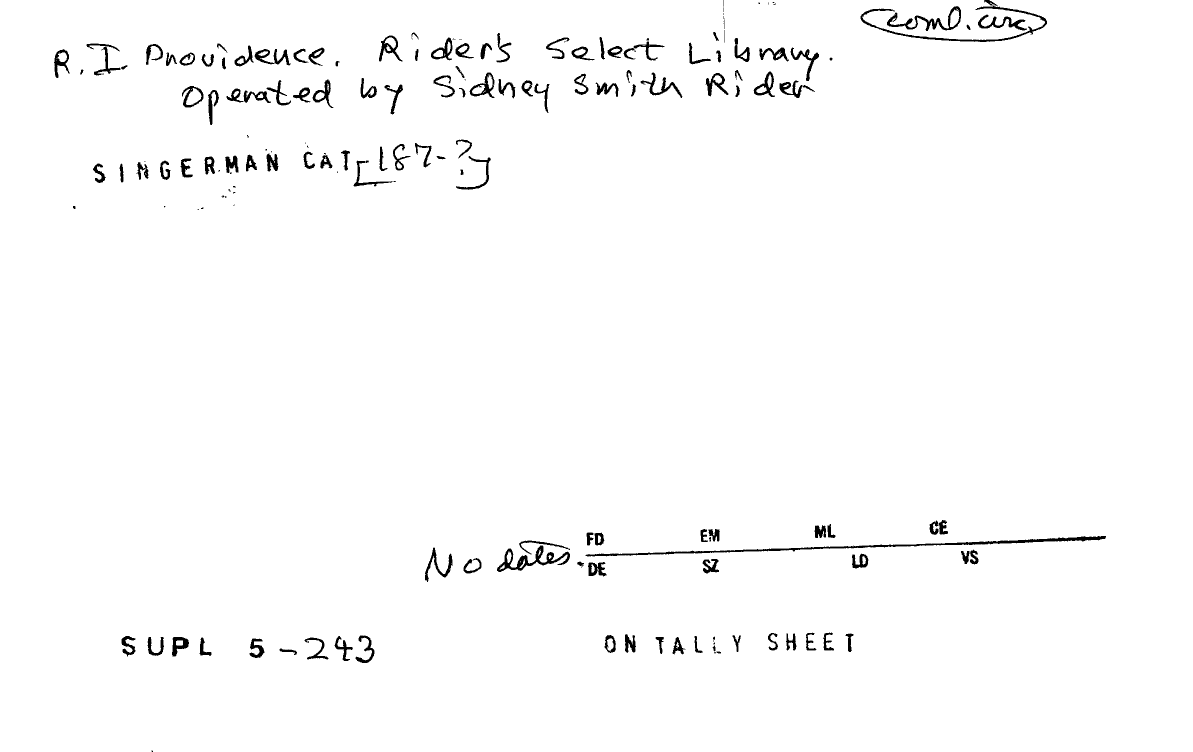 coml. circ.
R.I Providence. Rider's Select Library.
Operated by Sidney Smith Rider
SINGERMAN CAT [187-?]
FD EM ML CE
No dates. DE SZ LD VS
SUPL 5-243 ON TALLY SHEET